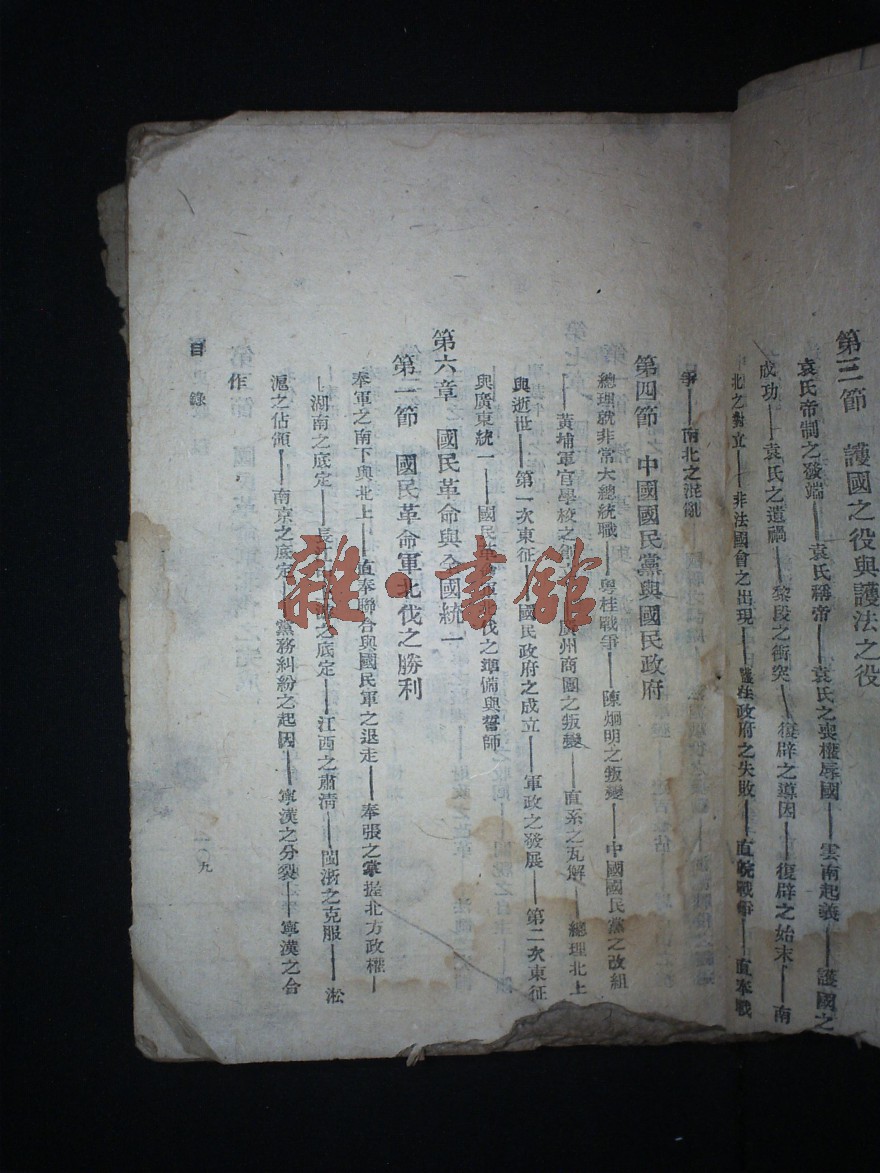 第三節 護國之役與護法之役
袁氏帝制之發端——袁氏稱帝——袁氏之喪權辱國——雲南起義——護國之
成功——袁氏之遺禍——黎段之衝突——復辟之導因——復辟之始末——南
北之對立——非法國會之出現——護法政府之失敗——直皖戰爭——直奉戰
爭——南北之混亂
第四節 中國國民黨與國民政府
總理就非常大總統職——粵桂戰爭——陳烱明之叛變——中國國民黨之改組
——黃埔軍官學校之創——廣州商團之叛變——直系之瓦解——總理北上
與逝世——第一次東征——國民政府之成立——軍政之發展——第二次東征
與廣東統一——國民革命軍北伐之準備與誓師
第六章 國民革命與全國統一
第一節 國民革命軍北伐之勝利
奉軍之南下與北上——直奉聯合與國民軍之退走——奉張之掌握北方政權—
—湖南之底定——長江之底定——江西之肅清——閩浙之克服——淞
滬之佔領——南京之底定——黨務糾紛之起因——寧漢之分裂——寧漢之合
作
目錄
九
雜·書館